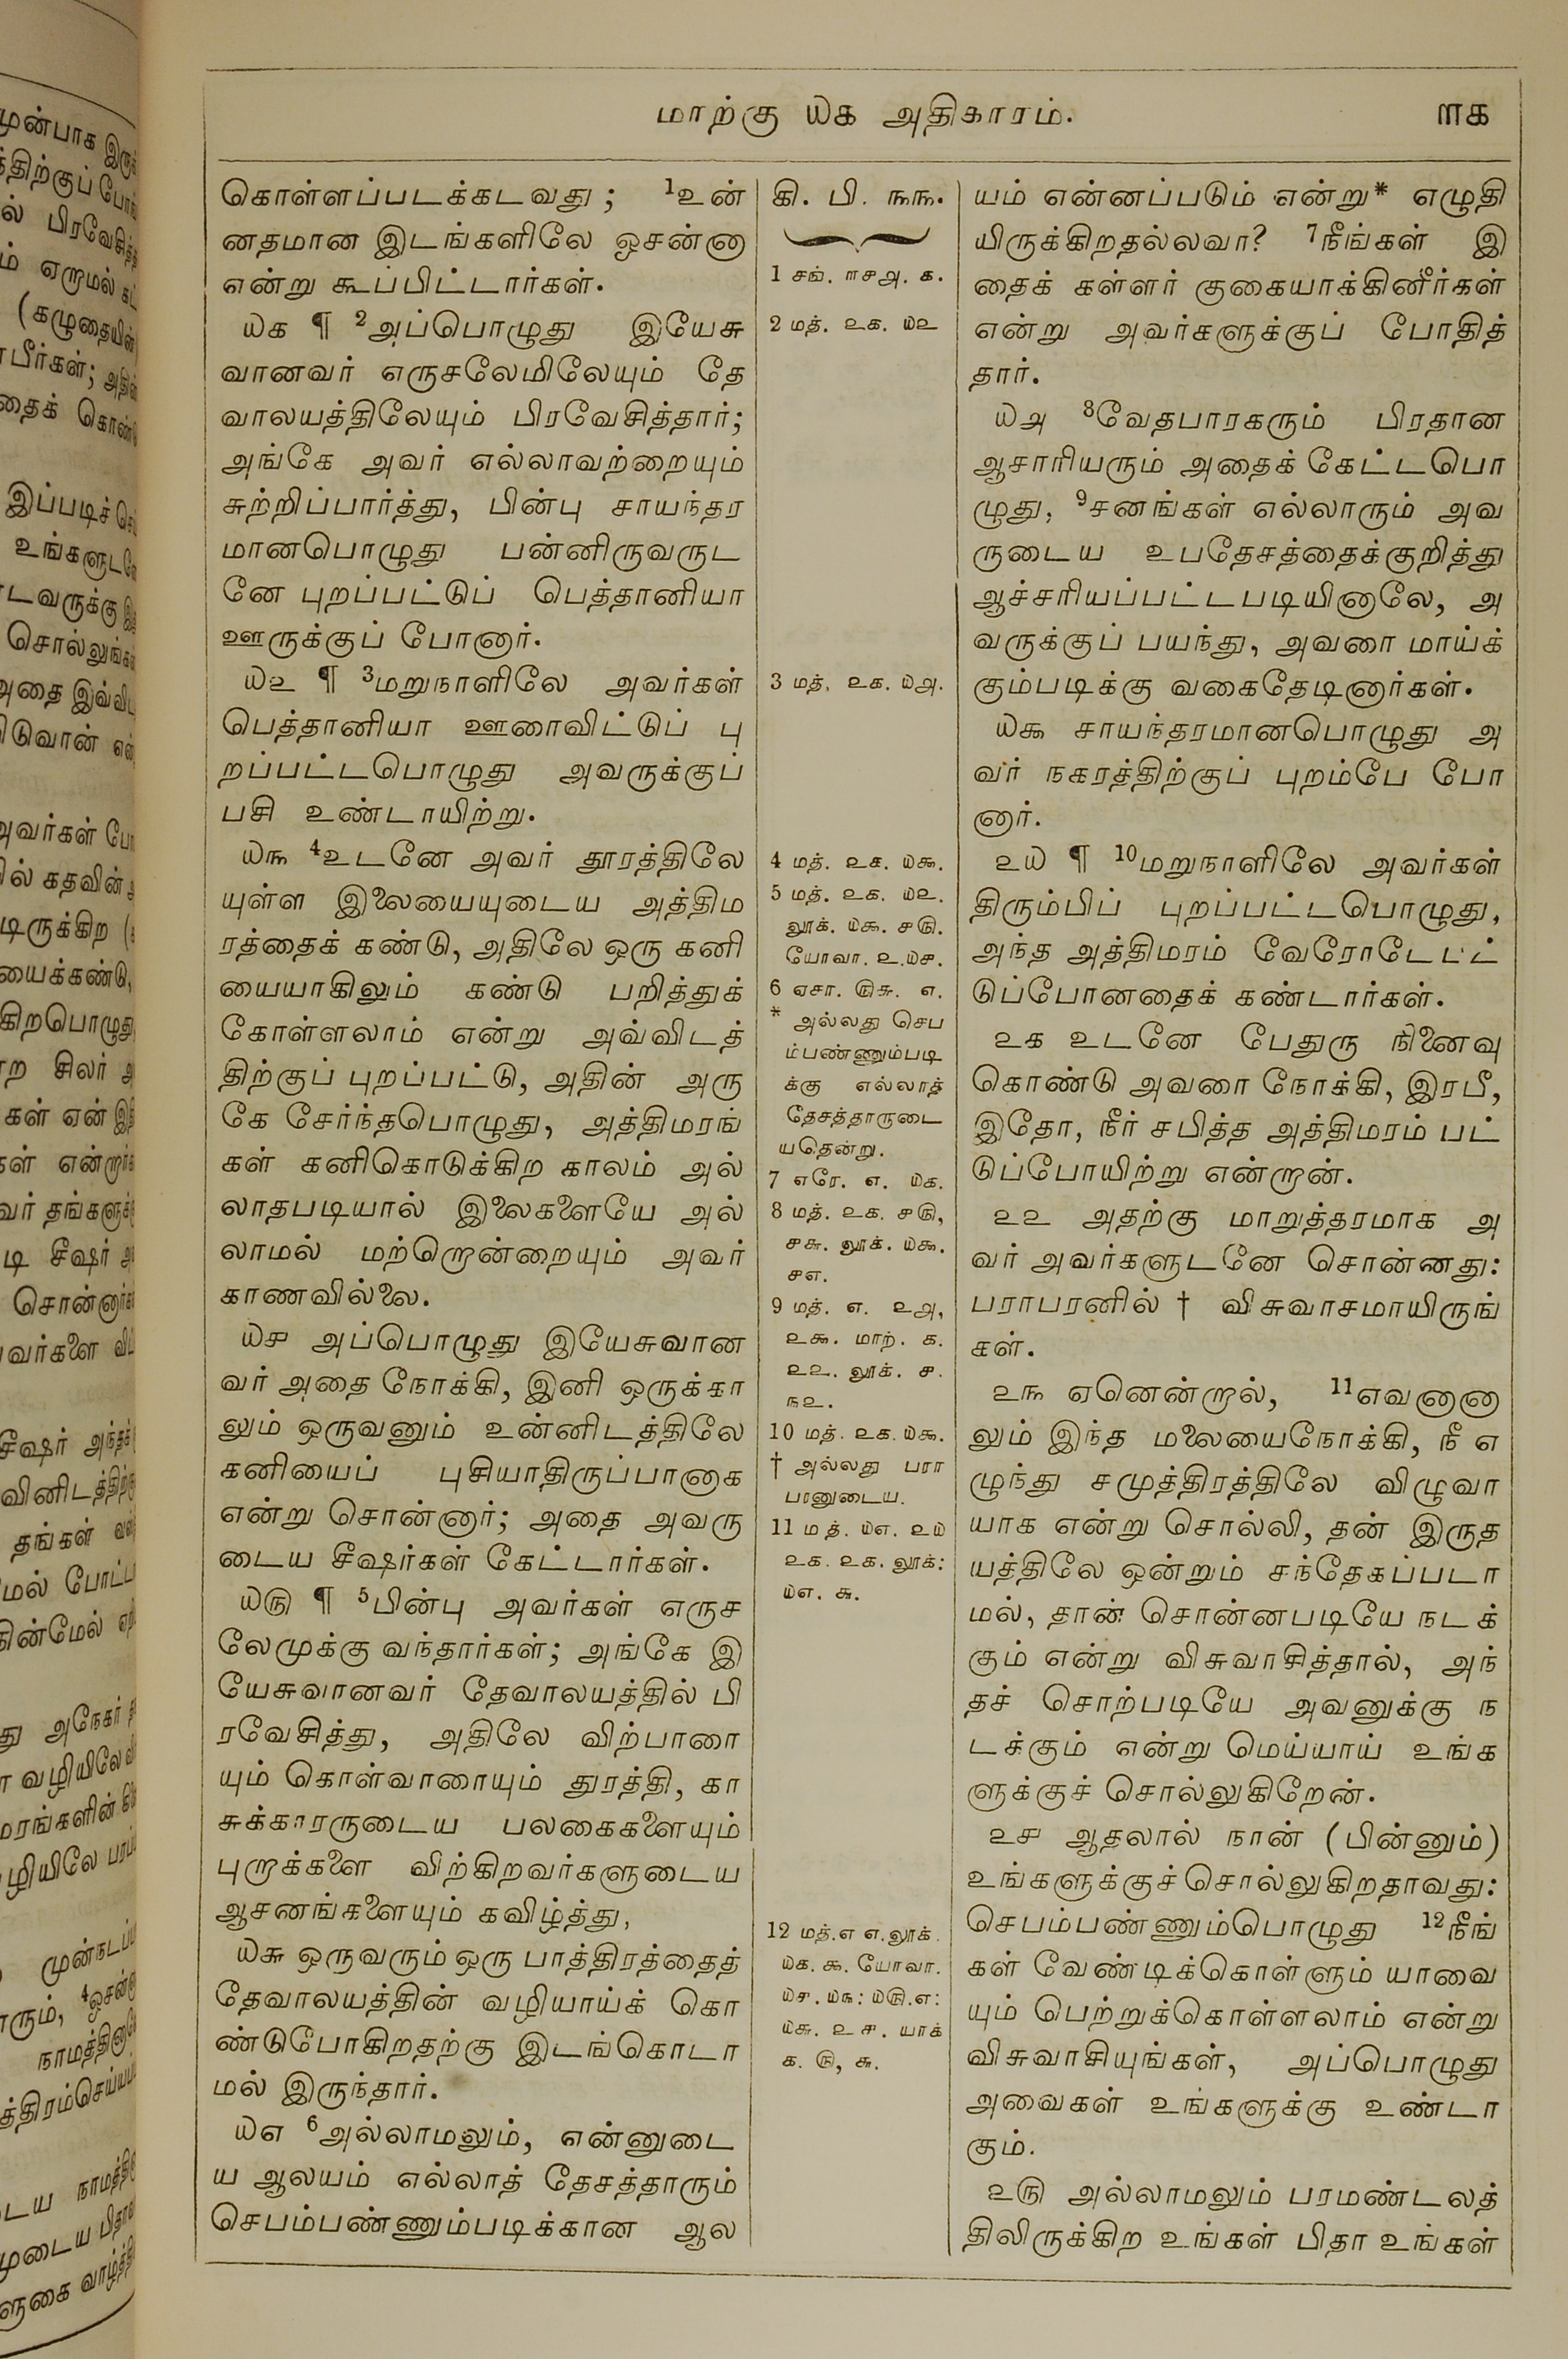 மாற்கு ௰௧ அதிகாரம்.
௱௧
கொள்ளப்படக்கடவது; ¹உன்
னதமான இடங்களிலே ஓசன்னா
என்று கூப்பிட்டார்கள்.
௰௧ ¶ ²அப்பொழுது இயேசு
வானவர் எருசலேமிலேயும் தே
வாலயத்திலேயும் பிரவேசித்தார்;
அங்கே அவர் எல்லாவற்றையும்
சுற்றிப்பார்த்து, பின்பு சாயந்தர
மானபொழுது பன்னிருவருட
னே புறப்பட்டுப் பெத்தானியா
ஊருக்குப் போனார்.
௰௨ ¶ ³மறுநாளிலே அவர்கள்
பெத்தானியா ஊரைவிட்டுப் பு
றப்பட்டபொழுது அவருக்குப்
பசி உண்டாயிற்று.
௰௩ ⁴உடனே அவர் தூரத்திலே
யுள்ள இலையையுடைய அத்திம
ரத்தைக் கண்டு, அதிலே ஒரு கனி
யையாகிலும் கண்டு பறித்துக்
கோள்ளலாம் என்று அவ்விடத்
திற்குப் புறப்பட்டு, அதின் அரு
கே சேர்ந்தபொழுது, அத்திமரங்
கள் கனிகொடுக்கிற காலம் அல்
லாதபடியால் இலைகளையே அல்
லாமல் மற்றொன்றையும் அவர்
காணவில்லை.
௰௪ அப்பொழுது இயேசுவான
வர் அதை நோக்கி, இனி ஒருக்கா
லும் ஒருவனும் உன்னிடத்திலே
கனியைப் புசியாதிருப்பானாக
என்று சொன்னார்; அதை அவரு
டைய சீஷர்கள் கேட்டார்கள்.
௰௫ ¶ ⁵பின்பு அவர்கள் எருச
லேமுக்கு வந்தார்கள்; அங்கே இ
யேசுவானவர் தேவாலயத்தில் பி
ரவேசித்து, அதிலே விற்பாரை
யும் கொள்வாரையும் துரத்தி, கா
சுக்காரருடைய பலகைகளையும்
புறாக்களை விற்கிறவர்களுடைய
ஆசனங்களையும் கவிழ்த்து,
௰௬ ஒருவரும் ஒரு பாத்திரத்தைத்
தேவாலயத்தின் வழியாய்க் கொ
ண்டுபோகிறதற்கு இடங்கொடா
மல் இருந்தார்.
௰௭ ⁶அல்லாமலும், என்னுடை
ய ஆலயம் எல்லாத் தேசத்தாரும்
செபம்பண்ணும்படிக்கான ஆல
கி. பி. ௩௩.
1 சங். ௱௪௮. ௧.
2 மத். ௨௧. ௰௨
3 மத். ௨௧. ௰௮.
4 மத். ௨௧. ௰௯.
5 மத். ௨௧. ௰௨.
லூக். ௰௯. ௪௫.
யோவா. ௨.௰௪.
6 ஏசா. ௫௬. ௭.
* அல்லது செப
ம்பண்ணும்படி
க்கு எல்லாத்
தேசத்தாருடை
யதென்று.
7 எரே. ௭. ௰௧.
8 மத். ௨௧. ௪௫,
௪௬. லூக். ௰௯.
௪௭.
9 மத். ௭. ௨௮,
௨௯. மாற். ௧.
௨௨. லூக். ௪.
௩௨.
10 மத். ௨௧.௰௯.
† அல்லது பரா
பரனுடைய.
11 மத். ௰௭. ௨௰
௨௧. ௨௧. லூக்:
௰௭. ௬.
12 மத்.௭ ௭.லூக்.
௰௧. ௯. யோவா.
௰௪. ௰௩: ௰௫.௭:
௰௬. ௨௪. யாக்
௧. ௫, ௬.
யம் என்னப்படும் என்று* எழுதி
யிருக்கிறதல்லவா? ⁷நீங்கள் இ
தைக் கள்ளர் குகையாக்கினீர்கள்
என்று அவர்களுக்குப் போதித்
தார்.
௰௮ ⁸வேதபாரகரும் பிரதான
ஆசாரியரும் அதைக் கேட்டபொ
ழுது, ⁹சனங்கள் எல்லாரும் அவ
ருடைய உபதேசத்தைக்குறித்து
ஆச்சரியப்பட்டபடியினாலே, அ
வருக்குப் பயந்து, அவரை மாய்க்
கும்படிக்கு வகைதேடினார்கள்.
௰௯ சாயந்தரமானபொழுது அ
வர் நகரத்திற்குப் புறம்பே போ
னார்.
௨௰ ¶ ¹⁰மறுநாளிலே அவர்கள்
திரும்பிப் புறப்பட்டபொழுது,
அந்த அத்திமரம் வேரோடே பட்
டுப்போனதைக் கண்டார்கள்.
௨௧ உடனே பேதுரு நினைவு
கொண்டு அவரை நோக்கி, இரபீ,
இதோ, நீர் சபித்த அத்திமரம் பட்
டுப்போயிற்று என்றான்.
௨௨ அதற்கு மாறுத்தரமாக அ
வர் அவர்களுடனே சொன்னது:
பராபரனில் † விசுவாசமாயிருங்
கள்.
௨௩ ஏனென்றால், ¹¹எவனானா
லும் இந்த மலையைநோக்கி, நீ எ
ழுந்து சமுத்திரத்திலே விழுவா
யாக என்று சொல்லி, தன் இருத
யத்திலே ஒன்றும் சந்தேகப்படா
மல், தான் சொன்னபடியே நடக்
கும் என்று விசுவாசித்தால், அந்
தச் சொற்படியே அவனுக்கு ந
டக்கும் என்று மெய்யாய் உங்க
ளுக்குச் சொல்லுகிறேன்.
௨௪ ஆதலால் நான் (பின்னும்)
உங்களுக்குச்சொல்லுகிறதாவது:
செபம்பண்ணும்பொழுது ¹²நீங்
கள் வேண்டிக்கொள்ளும் யாவை
யும் பெற்றுக்கொள்ளலாம் என்று
விசுவாசியுங்கள், அப்பொழுது
அவைகள் உங்களுக்கு உண்டா
கும்.
௨௫ அல்லாமலும் பரமண்டலத்
திலிருக்கிற உங்கள் பிதா உங்கள்